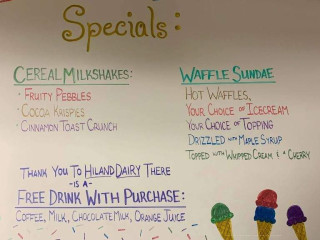 Specials:
CEREAL MILKSHAKES:
· FRUITY PEBBLES
· COCOA KRISPIES
· CINNAMON TOAST CRUNCH
WAFFLE SUNDAE
HOT WAFFLES,
YOUR CHOICE OF ICECREAM
YOUR CHOICE OF TOPPING
DRIZZLED WITH MAPLE SYRUP
TOPPED WITH WHIPPED CREAM & A CHERRY
THANK YOU TO HILAND DAIRY THERE
-IS A-
FREE DRINK WITH PURCHASE:
COFFEE, MILK, CHOCOLATE MILK, ORANGE JUICE